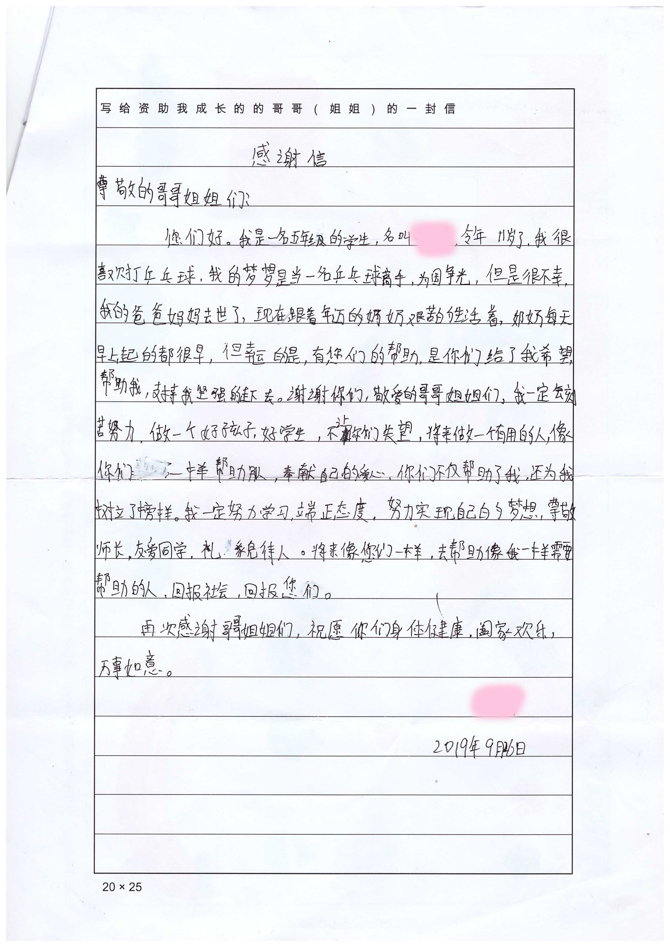 写给资助我成长的的哥哥(姐姐)的一封信
感谢信
尊敬的哥哥姐姐们:
您们好。我是一名五年级的学生,名叫,今年11岁了,我很
喜欢打乒乓球,我的梦想是当一名乒乓球高手,为国争光,但是很不幸,
我的爸爸妈妈去世了,现在跟着年迈的奶奶艰苦的生活着,奶奶每天
早上起的都很早,但幸运的是,有您们的帮助,是你们给了我希望,
帮助我,支持我坚强的走下去。谢谢你们,敬爱的哥哥姐姐们,我一定会刻
苦努力,做一个好孩子,好学生,不让你们失望,将来做一个有用的人,像
你们一样帮助别人,奉献自己的爱心,你们不仅帮助了我,还为我
树立了榜样。我一定努力学习,端正态度,努力实现自己的梦想,尊敬
师长,友爱同学,礼貌待人。将来像您们一样,去帮助像我一样需要
帮助的人,回报社会,回报您们。
再次感谢哥姐姐们,祝愿你们身体健康,阖家欢乐,
万事如意。
2019年9月16日
20×25